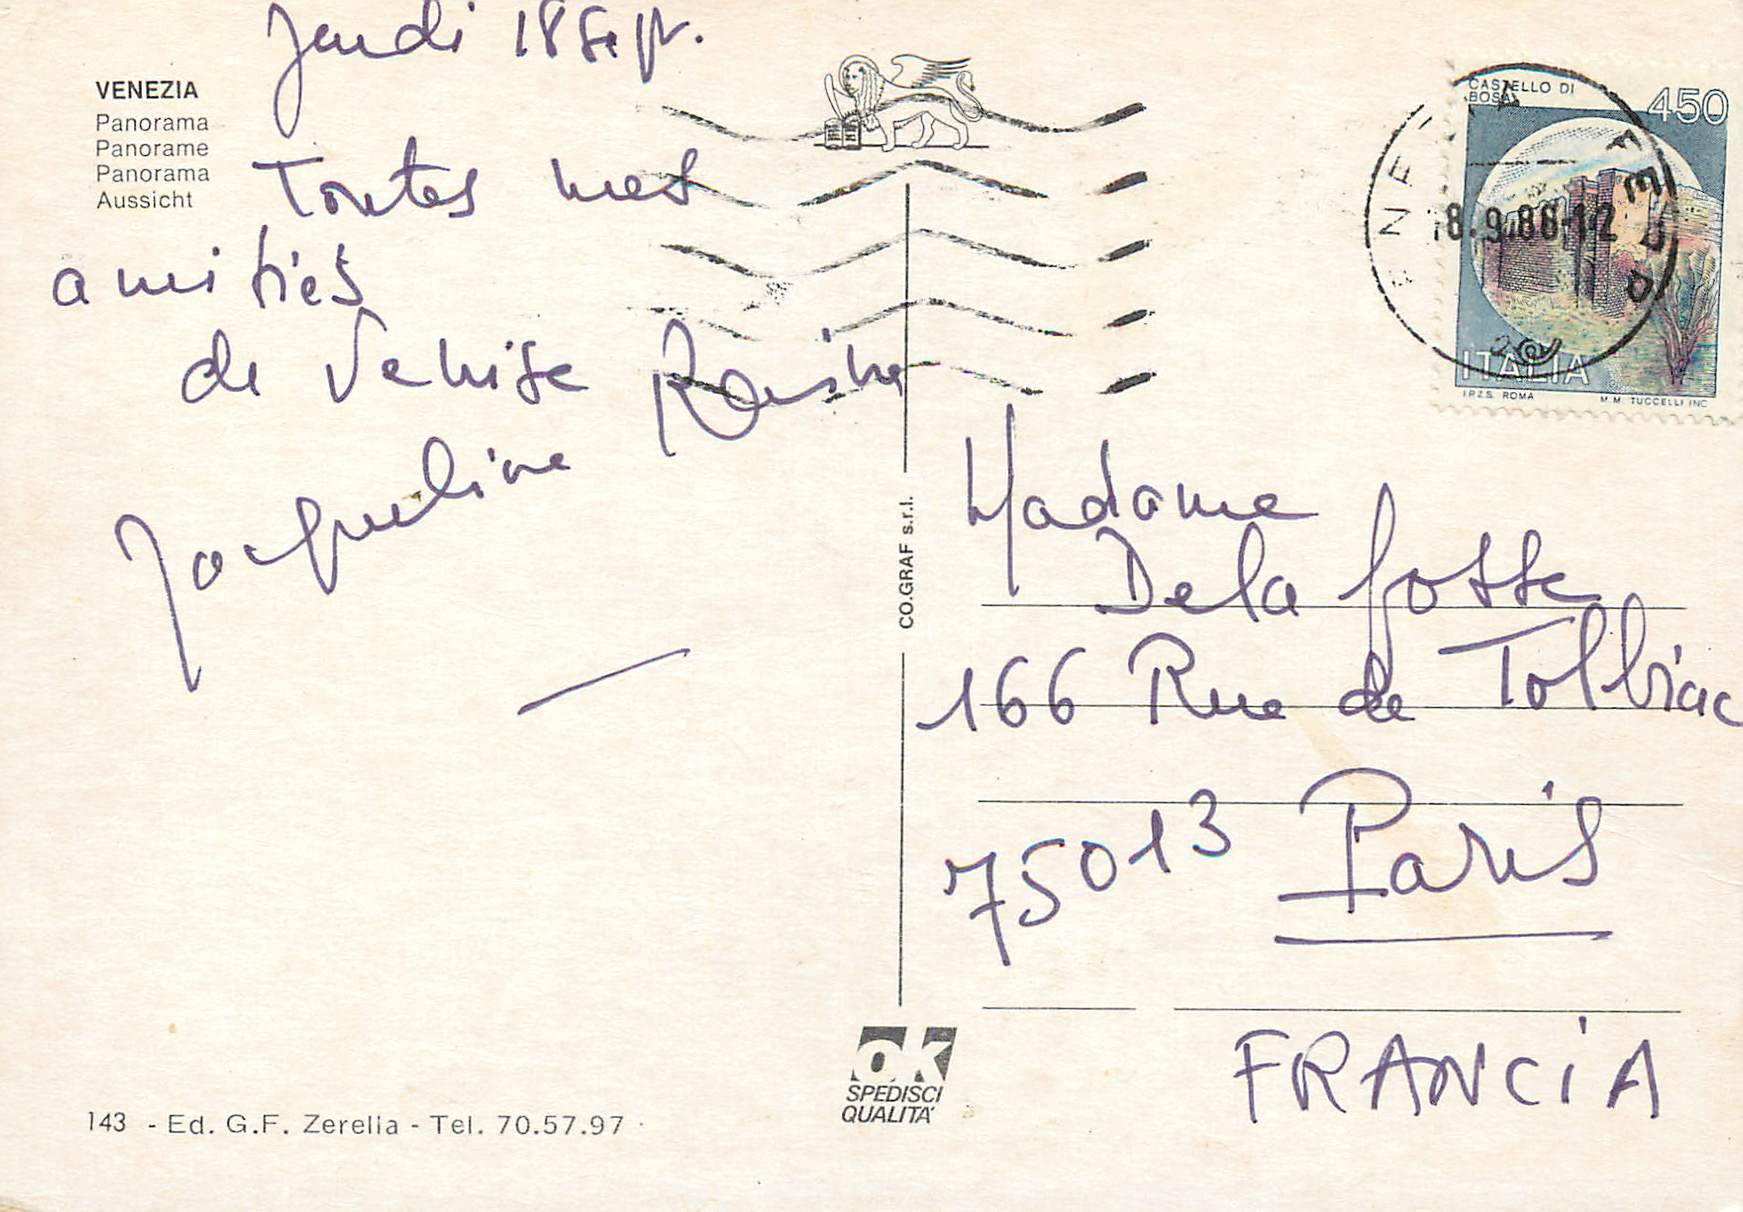 Jeudi 18 Sept.
VENEZIA
Panorama
Panorame
Panorama
Aussicht
Toutes mes
amitiés
de Venise
Jacqueline
CASTELLO DI
BOSA
450
8.9.88-12
ITALIA
I.P.Z.S. ROMA
M.M. TUCCELLI INC
CO.GRAF s.r.l.
Madame
Delafosse
166 Rue de Tolbiac
75013 Paris
FRANCIA
OK
SPEDISCI
QUALITA'
143 - Ed. G.F. Zerella - Tel. 70.57.97